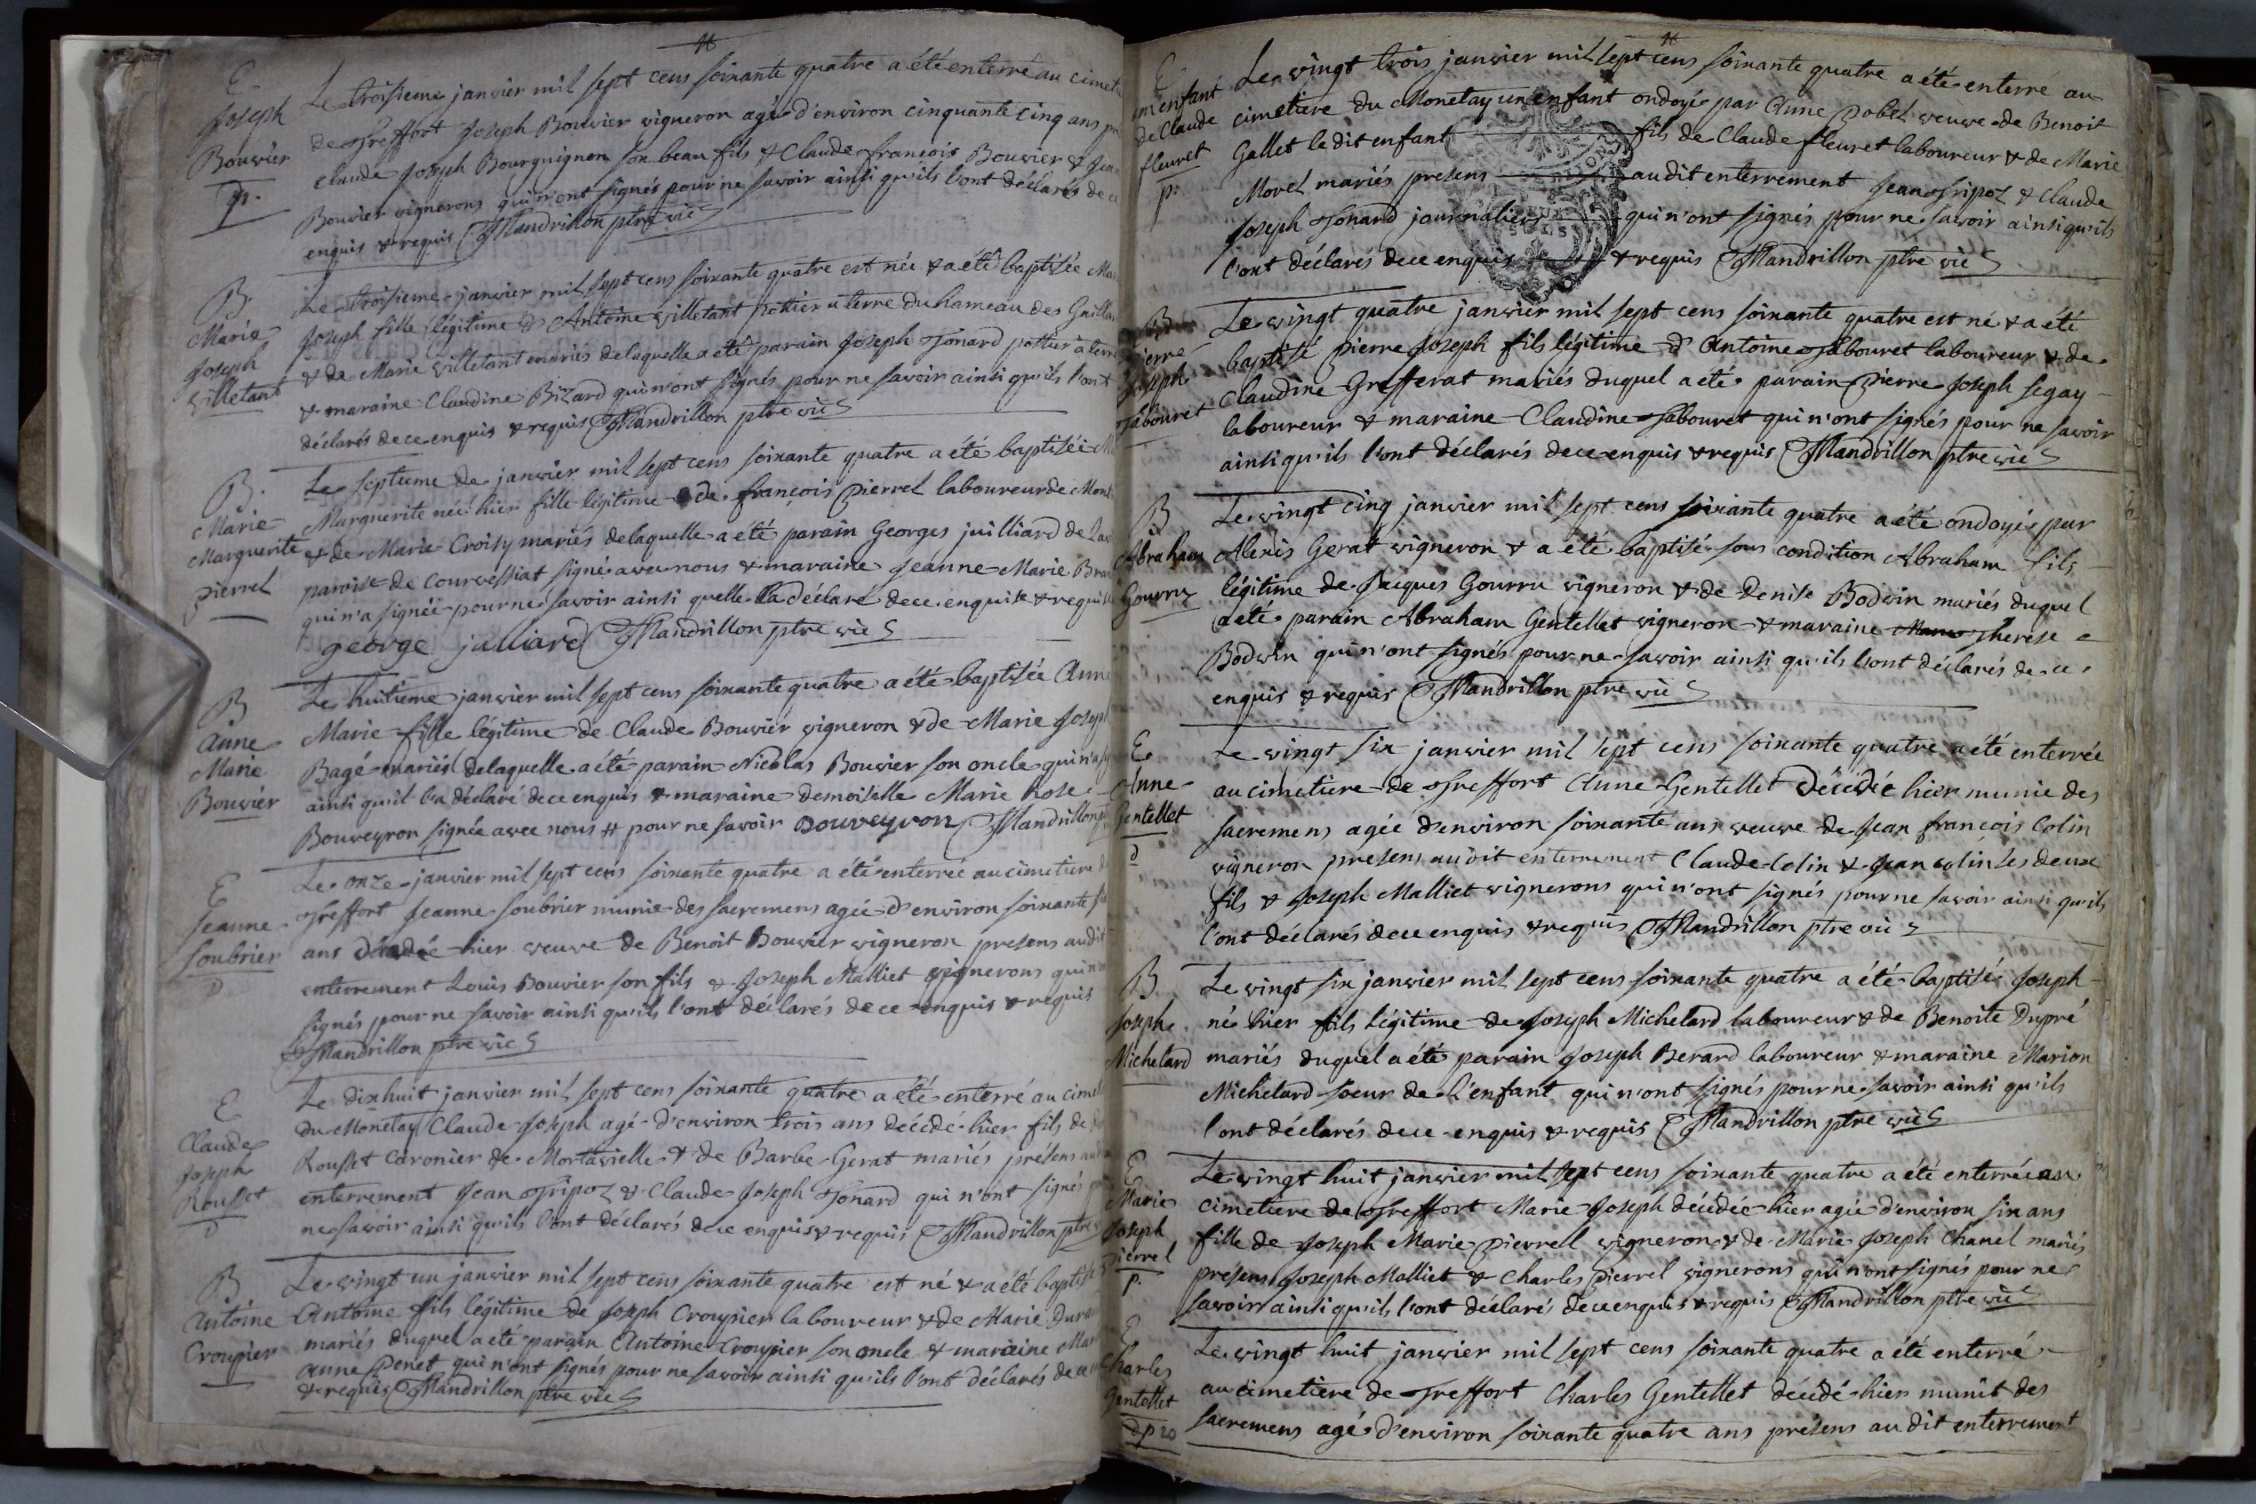 E
Joseph
Bouvier
p.
Le troisieme janvier mil sept cens soixante quatre a été enterré au cimet
de Treffort Joseph Bouvier vigneron agé d'environ cinquante cinq ans
Claude Joseph Bourguignon son beau fils & Claude françois Bouvier &
Bouvier vignerons qui n'ont signés pour ne savoir ainsi qu'ils l'ont déclarés de
enquis & requis Mandrillon ptre vic
B
Marie
Joseph
Villetant
Le troisieme janvier mil sept cens soixante quatre est née & a été baptisée
Joseph fille légitime d'Antoine Villetant pottier a terre du hameau des
& de Marie Villetant mariés de laquelle a été parain Joseph Tonard pottier a terre
& maraine Claudine Bizard qui n'ont signés pour ne savoir ainsi qu'ils l'ont
déclarés de ce enquis & requis Mandrillon ptre vic
B.
Marie
Marguerite
Pierrel
Le septieme de janvier mil sept cens soixante quatre a été baptisée
Marguerite née hier fille légitime de françois Pierrel laboureur de
& de Marie Croisy mariés de laquelle a été parain Georges juilliard de
paroisse de Courvessiat signé avec nous & maraine Jeanne Marie
qui n'a signée pour ne savoir ainsi quelle l'a déclaré de ce enquise & requise
george jalliard Mandrillon ptre vic
B
Anne
Marie
Bouvier
Le huitieme janvier mil sept cens soixante quatre a été baptisée Anne
Marie fille légitime de Claude Bouvier vigneron & de Marie Joseph
Bagé mariés de laquelle a été parain Nicolas Bouvier son oncle qui n'a
ainsi qu'il l'a déclaré de ce enquis & maraine demoiselle Marie Rose
Bouveyron signée avec nous # pour ne savoir Bouveyron Mandrillon
E
Jeanne
Soubrier
D
Le onze janvier mil sept cens soixante quatre a été enterrée au cimetiere
Treffort Jeanne Soubrier munie des sacremens agée d'environ soixante
ans décédée hier veuve de Benoit Bouvier vigneron presens au dit
enterrement Louis Bouvier son fils & Joseph Malliet vignerons qui
signés pour ne savoir ainsi qu'ils l'ont déclarés de ce enquis & requis
Mandrillon ptre vic
E
Claude
Joseph
Rousset
D
Le dix huit janvier mil sept cens soixante quatre a été enterré au
du Monetay Claude Joseph agé d'environ trois ans décédé hier fils de
Rousset Caronier de Mortavielle & de Barbe Gerat mariés présens
enterrement Jean Tripoz & Claude Joseph Tonard qui n'ont signés
ne savoir ainsi qu'ils l'ont déclarés de ce enquis & requis Mandrillon ptre
B
Antoine
Croupier
Le vingt un janvier mil sept cens soixante quatre est né & a été baptisé
Antoine fils légitime de Joseph Croupier laboureur & de Marie
mariés duquel a été parain Antoine Croupier son oncle & maraine
Anne Penet qui n'ont signés pour ne savoir ainsi qu'ils l'ont déclarés de ce
& requis Mandrillon ptre vic
E
un enfant
de Claude
fleuret
p.
Le vingt trois janvier mil sept cens soixante quatre a été enterré au
cimetiere du Monetay un enfant ondoyé par Anne Pobel veuve de Benoit
Gallet le dit enfant fils de Claude fleuret laboureur & de Marie
Morel mariés presens au dit enterrement Jean Tripoz & Claude
Joseph Tonard journaliers qui n'ont signés pour ne savoir ainsi qu'ils
l'ont déclarés de ce enquis & requis Mandrillon ptre vic
SOLS
B
Pierre
Joseph
Tabouret
Le vingt quatre janvier mil sept cens soixante quatre est né & a été
baptisé Pierre Joseph fils légitime d'Antoine Tabouret laboureur & de
Claudine Grefferat mariés duquel a été parain Pierre Joseph Segay
laboureur & maraine Claudine Tabouret qui n'ont signés pour ne savoir
ainsi qu'ils l'ont déclarés de ce enquis & requis Mandrillon ptre vic
B
Abraham
Gourru
Le vingt cinq janvier mil sept cens soixante quatre a été ondoyé par
Alexis Gerat vigneron & a été baptisé sous condition Abraham fils
légitime de Jacques Gourru vigneron & de Denise Bodvin mariés duquel
a été parain Abraham Gentellet vigneron & maraine Therese
Bodvin qui n'ont signés pour ne savoir ainsi qu'ils l'ont déclarés de ce
enquis & requis Mandrillon ptre vic
E
Anne
Gentellet
d
Le vingt six janvier mil sept cens soixante quatre a été enterrée
au cimetiere de Treffort Anne Gentellet décédée hier munie des
sacremens agée d'environ soixante ans veuve de Jean françois Colin
vigneron presens au dit enterrement Claude Colin & Jean Colin ses deux
fils & Joseph Malliet vignerons qui n'ont signés pour ne savoir ainsi qu'ils
l'ont déclarés de ce enquis & requis Mandrillon ptre vic
B
Joseph
Michelard
Le vingt six janvier mil sept cens soixante quatre a été baptisé Joseph
né hier fils légitime de Joseph Michelard laboureur & de Benoite Dupré
mariés duquel a été parain Joseph Berard laboureur & maraine Marion
Michelard soeur de l'enfant qui n'ont signés pour ne savoir ainsi qu'ils
l'ont déclarés de ce enquis & requis Mandrillon ptre vic
E
Marie
Joseph
Pierrel
p.
Le vingt huit janvier mil sept cens soixante quatre a été enterrée au
cimetiere de Treffort Marie Joseph décédée hier agée d'environ six ans
fille de Joseph Marie Pierrel vigneron & de Marie Joseph Chanel mariés
présens Joseph Malliet & Charles Pierrel vignerons qui n'ont signés pour ne
savoir ainsi qu'ils l'ont déclarés de ce enquis & requis Mandrillon ptre vic
E
Charles
Gentellet
Le vingt huit janvier mil sept cens soixante quatre a été enterré
au cimetiere de Treffort Charles Gentellet décédé hier munit des
sacremens agé d'environ soixante quatre ans présens au dit enterrement